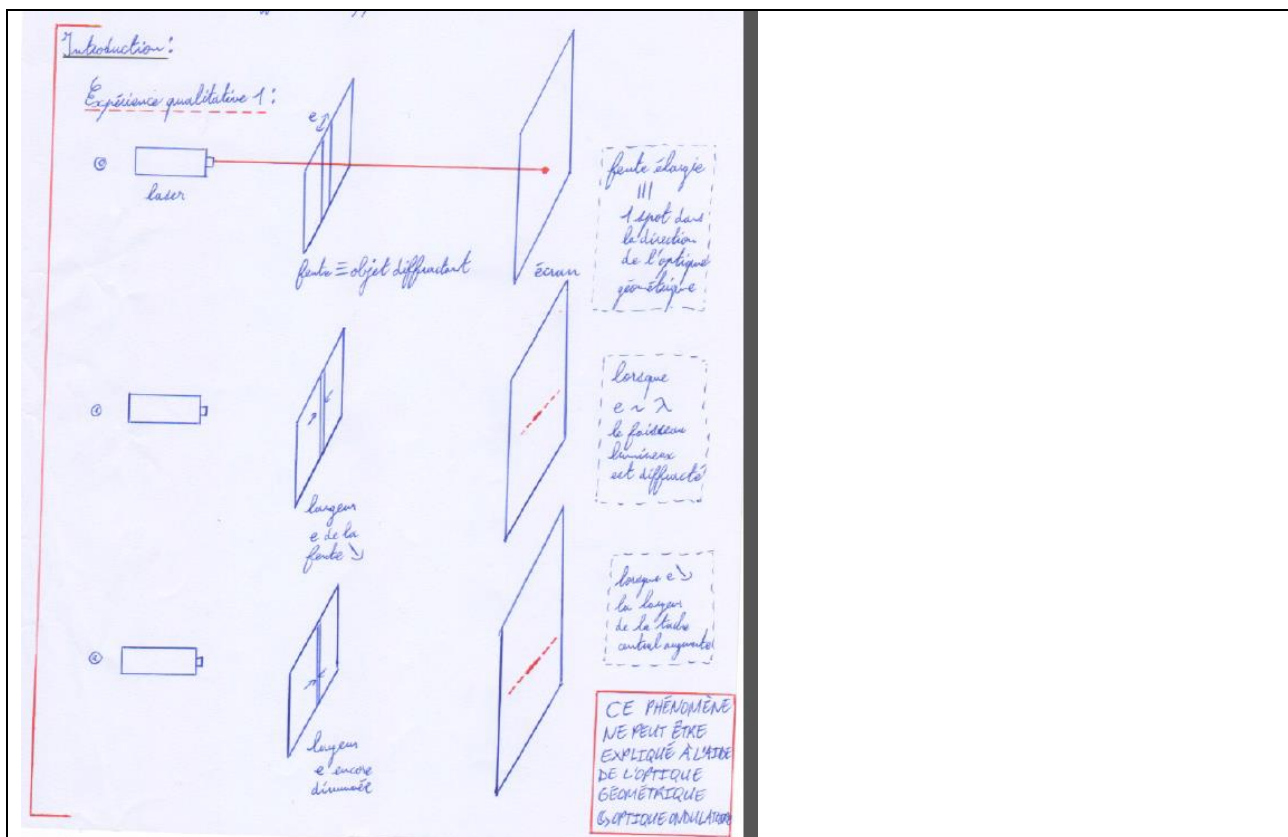 Introduction:
Expérience qualitative 1:
e
laser
fente ≡ objet diffractant
écran
fente élargie
|||
1 spot dans
la direction
de l'optique
géométrique
largeur
e de la
fente ↘
lorsque
e ~ λ
le faisceau
lumineux
est diffracté
largeur
e encore
diminuée
lorsque e ↘
la largeur
de la tache
central augmente
CE PHÉNOMÈNE
NE PEUT ÊTRE
EXPLIQUÉ À L'AIDE
DE L'OPTIQUE
GÉOMÉTRIQUE
↳ OPTIQUE ONDULATOIRE